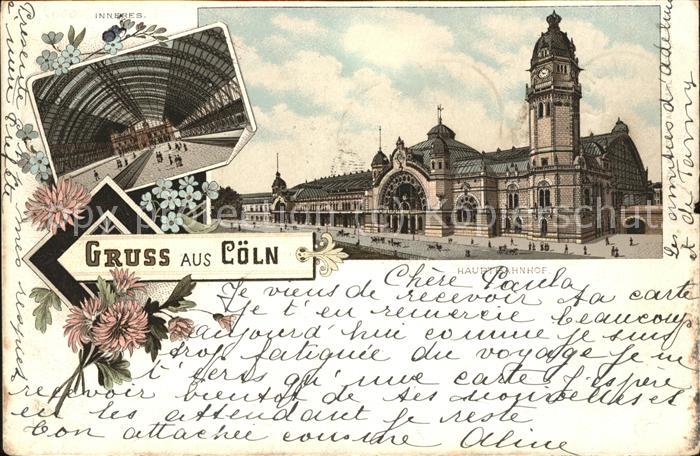 INNERES.
GRUSS AUS CÖLN
HAUPTBAHNHOF.
Chère Paula
Je viens de recevoir ta carte
je t'en remercie beaucoup
aujourd'hui comme je suis
trop fatiguée du voyage je ne
t'écris qu'une carte j'espère
recevoir bientot de tes nouvelles et
en les attendant je reste
ton attachée cousine Aline
Présente